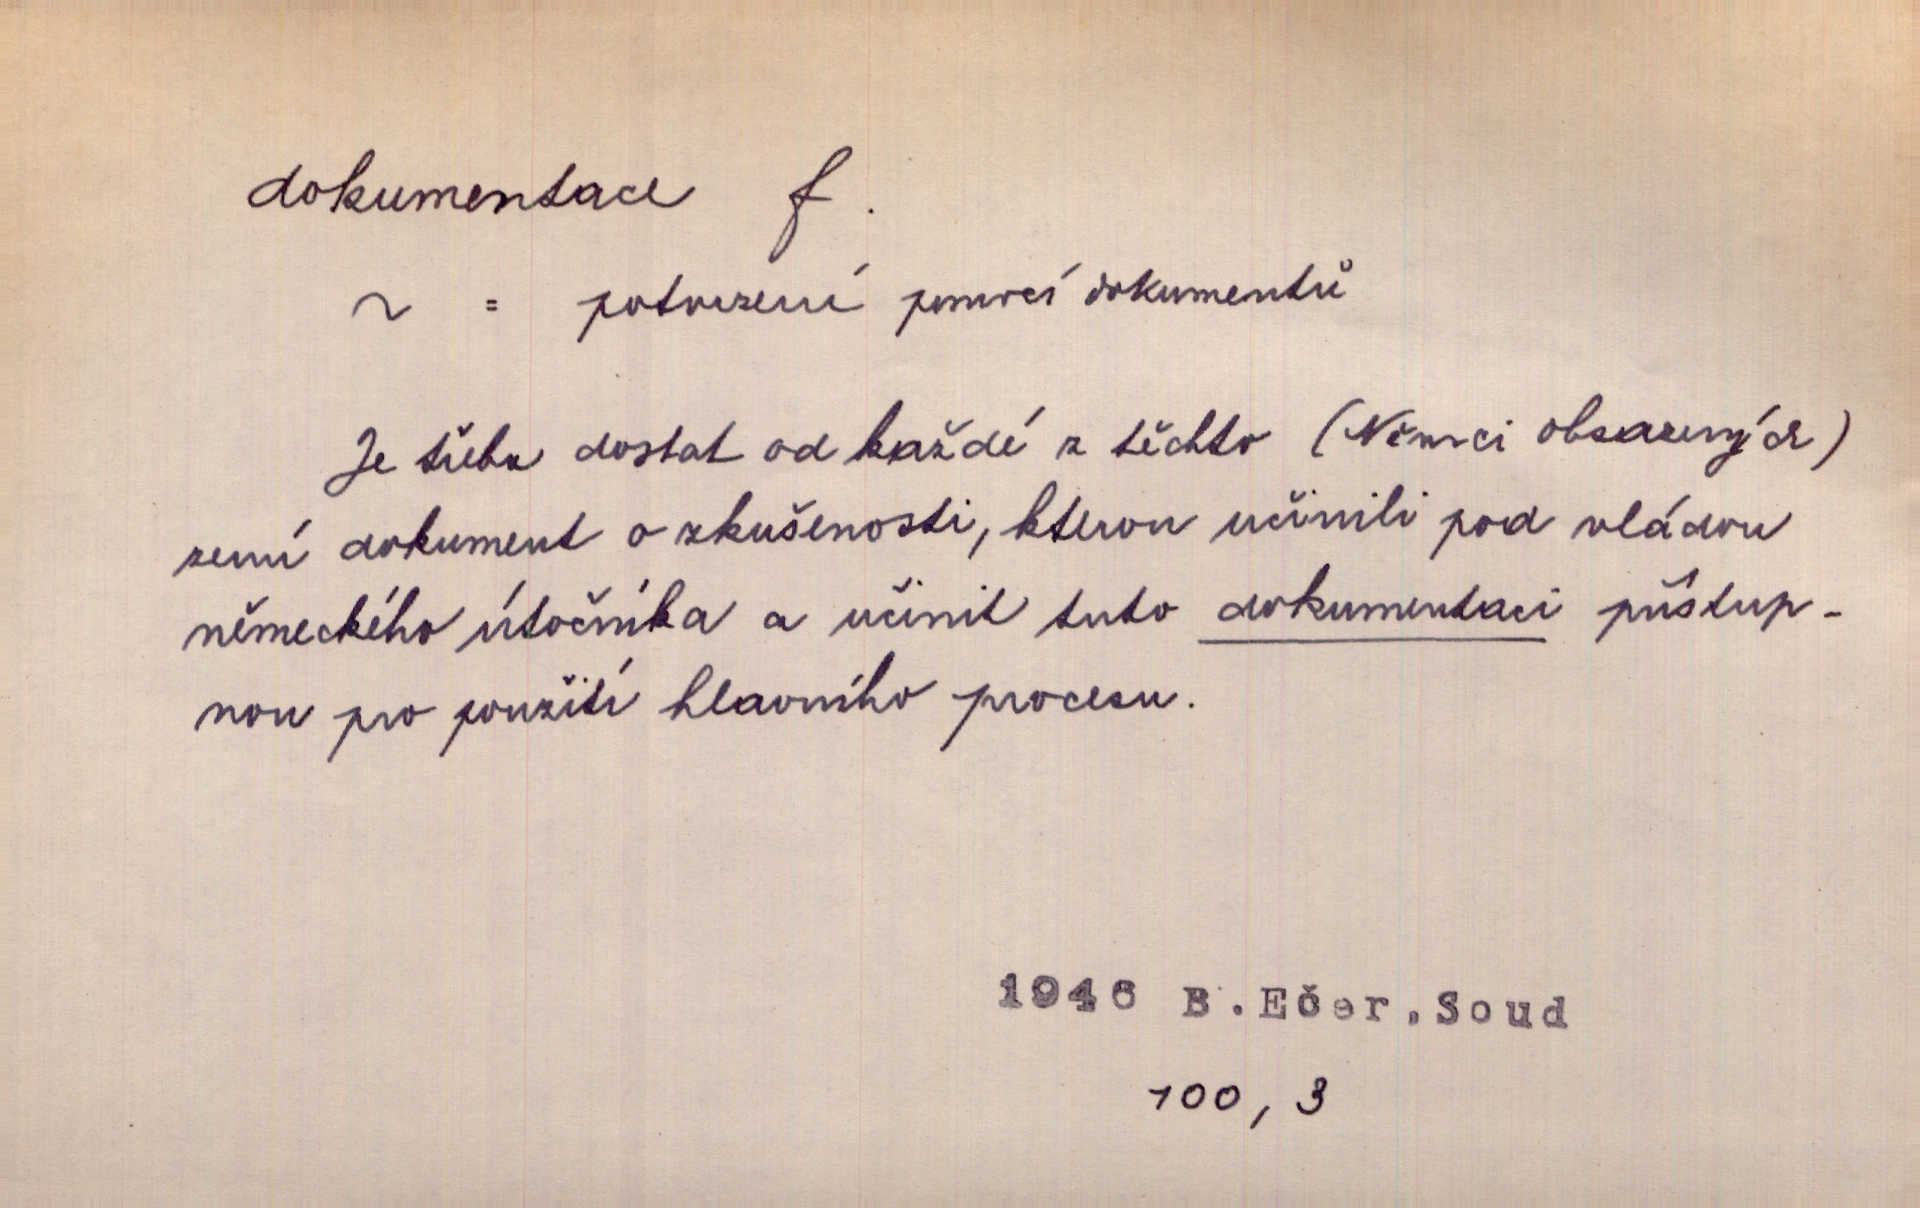 dokumentace f.
~ = potvrzení pomocí dokumentů
Je třeba dostat od každé z těchto (Němci obsazených)
zemí dokument o zkušenosti, kterou učinili pod vládou
německého útočníka a učinit tuto dokumentaci přístup-
nou pro použití hlavního procesu.
1946 B.Ečer,Soud
100, 3